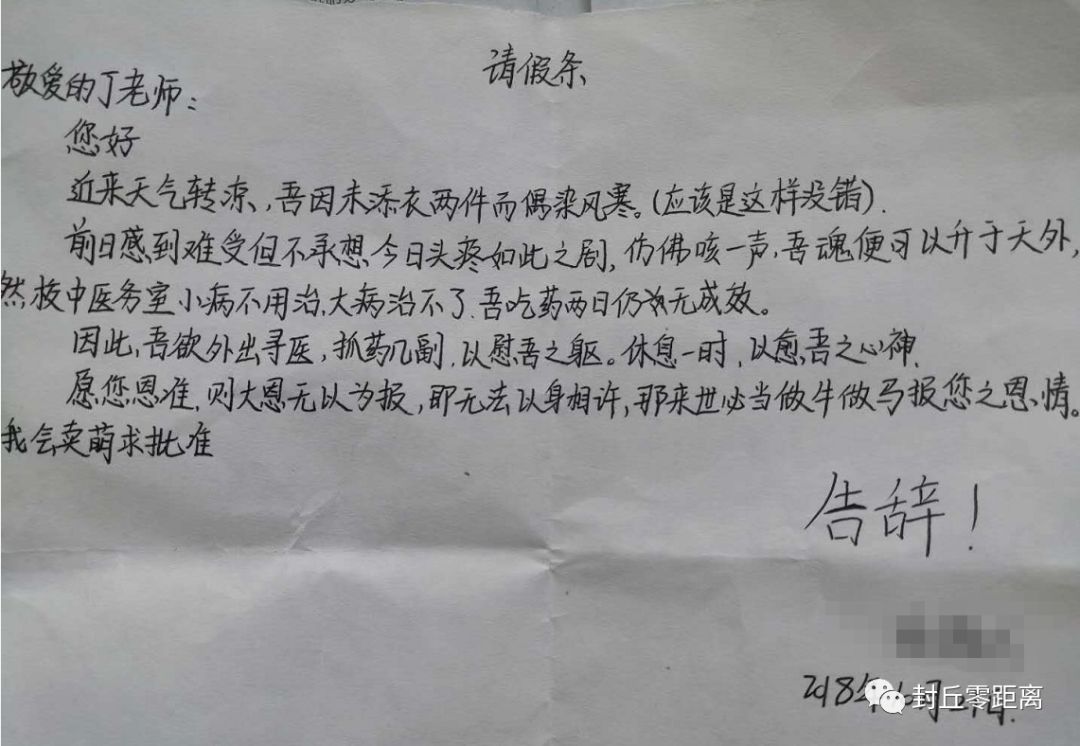 请假条
敬爱的丁老师：
您好
近来天气转凉，吾因未添衣两件而偶染风寒。(应该是这样没错).
前日感到难受但不承想今日头疼如此之剧，仿佛咳一声，吾魂便可以升于天外，
然校中医务室小病不用治，大病治不了.吾吃药两日仍无成效。
因此，吾欲外出寻医，抓药几副，以慰吾之躯。休息一时，以愈吾之心神.
愿您恩准，则大恩无以为报，即无法以身相许，那来世必当做牛做马报您之恩情。
我会卖萌求批准
告辞！
2018年 月
封丘零距离